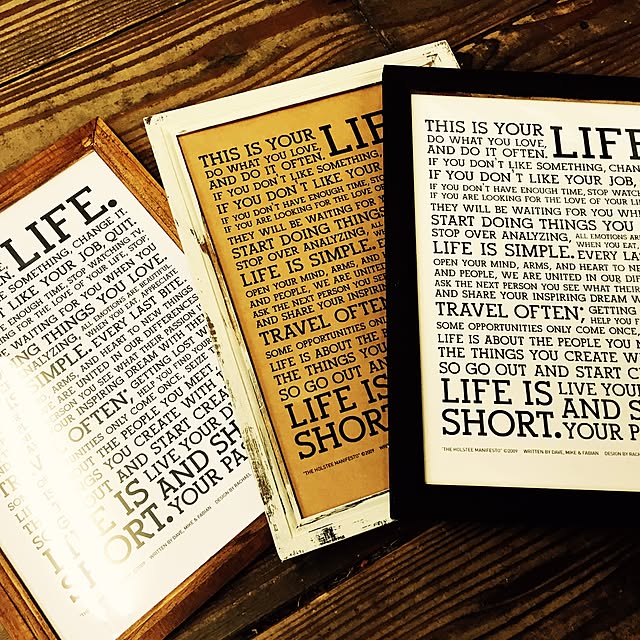 LIFE.
SOMETHING, CHANGE IT.
LIKE YOUR JOB, QUIT.
ENOUGH TIME, STOP WATCHING TV.
FOR THE LOVE OF YOUR LIFE, STOP;
WAITING FOR YOU WHEN YOU
THINGS YOU LOVE.
ALL EMOTIONS ARE BEAUTIFUL.
WHEN YOU EAT, APPRECIATE
SIMPLE. EVERY LAST BITE.
ARMS, AND HEART TO NEW THINGS
WE ARE UNITED IN OUR DIFFERENCES.
PERSON YOU SEE WHAT THEIR PASSION IS,
YOUR INSPIRING DREAM WITH THEM.
OFTEN; GETTING LOST WILL
HELP YOU FIND
ONLY COME ONCE, SEIZE
THE PEOPLE YOU MEET
YOU CREATE WITH
OUT AND START CREA
IS LIVE YOUR D
AND SH
ORT. YOUR PA
WRITTEN BY DAVE, MIKE & FABIAN DESIGN BY RACHAEL
THIS IS YOUR LIF
DO WHAT YOU LOVE,
AND DO IT OFTEN.
IF YOU DON'T LIKE SOMETHING,
IF YOU DON'T LIKE YOUR
IF YOU DON'T HAVE ENOUGH TIME, ST
IF YOU ARE LOOKING FOR THE LOVE OF
THEY WILL BE WAITING FOR
START DOING THINGS
STOP OVER ANALYZING,
LIFE IS SIMPLE.
OPEN YOUR MIND, ARMS, AND
AND PEOPLE, WE ARE UNITED
ASK THE NEXT PERSON YOU SEE
AND SHARE YOUR INSPIRING
TRAVEL OFTEN;
SOME OPPORTUNITIES ONLY
LIFE IS ABOUT THE
THE THINGS YOU
SO GO OUT AND
LIFE IS
SHORT.
"THE HOLSTEE MANIFESTO" ©2009
THIS IS YOUR LIFE
DO WHAT YOU LOVE,
AND DO IT OFTEN.
IF YOU DON'T LIKE SOMETHING, CHAN
IF YOU DON'T LIKE YOUR JOB,
IF YOU DON'T HAVE ENOUGH TIME, STOP WATC
IF YOU ARE LOOKING FOR THE LOVE OF YOUR LI
THEY WILL BE WAITING FOR YOU WH
START DOING THINGS YOU
STOP OVER ANALYZING, ALL EMOTIONS AR
LIFE IS SIMPLE. WHEN YOU EAT,
EVERY LA
OPEN YOUR MIND, ARMS, AND HEART TO NE
AND PEOPLE, WE ARE UNITED IN OUR DIFF
ASK THE NEXT PERSON YOU SEE WHAT THEIR
AND SHARE YOUR INSPIRING DREAM W
TRAVEL OFTEN; GETTING
HELP YOU F
SOME OPPORTUNITIES ONLY COME ONC
LIFE IS ABOUT THE PEOPLE YOU M
THE THINGS YOU CREATE W
SO GO OUT AND START C
LIFE IS LIVE YOUR
AND S
SHORT. YOUR P
"THE HOLSTEE MANIFESTO" ©2009 WRITTEN BY DAVE, MIKE & FABIAN DESIGN BY RACHA